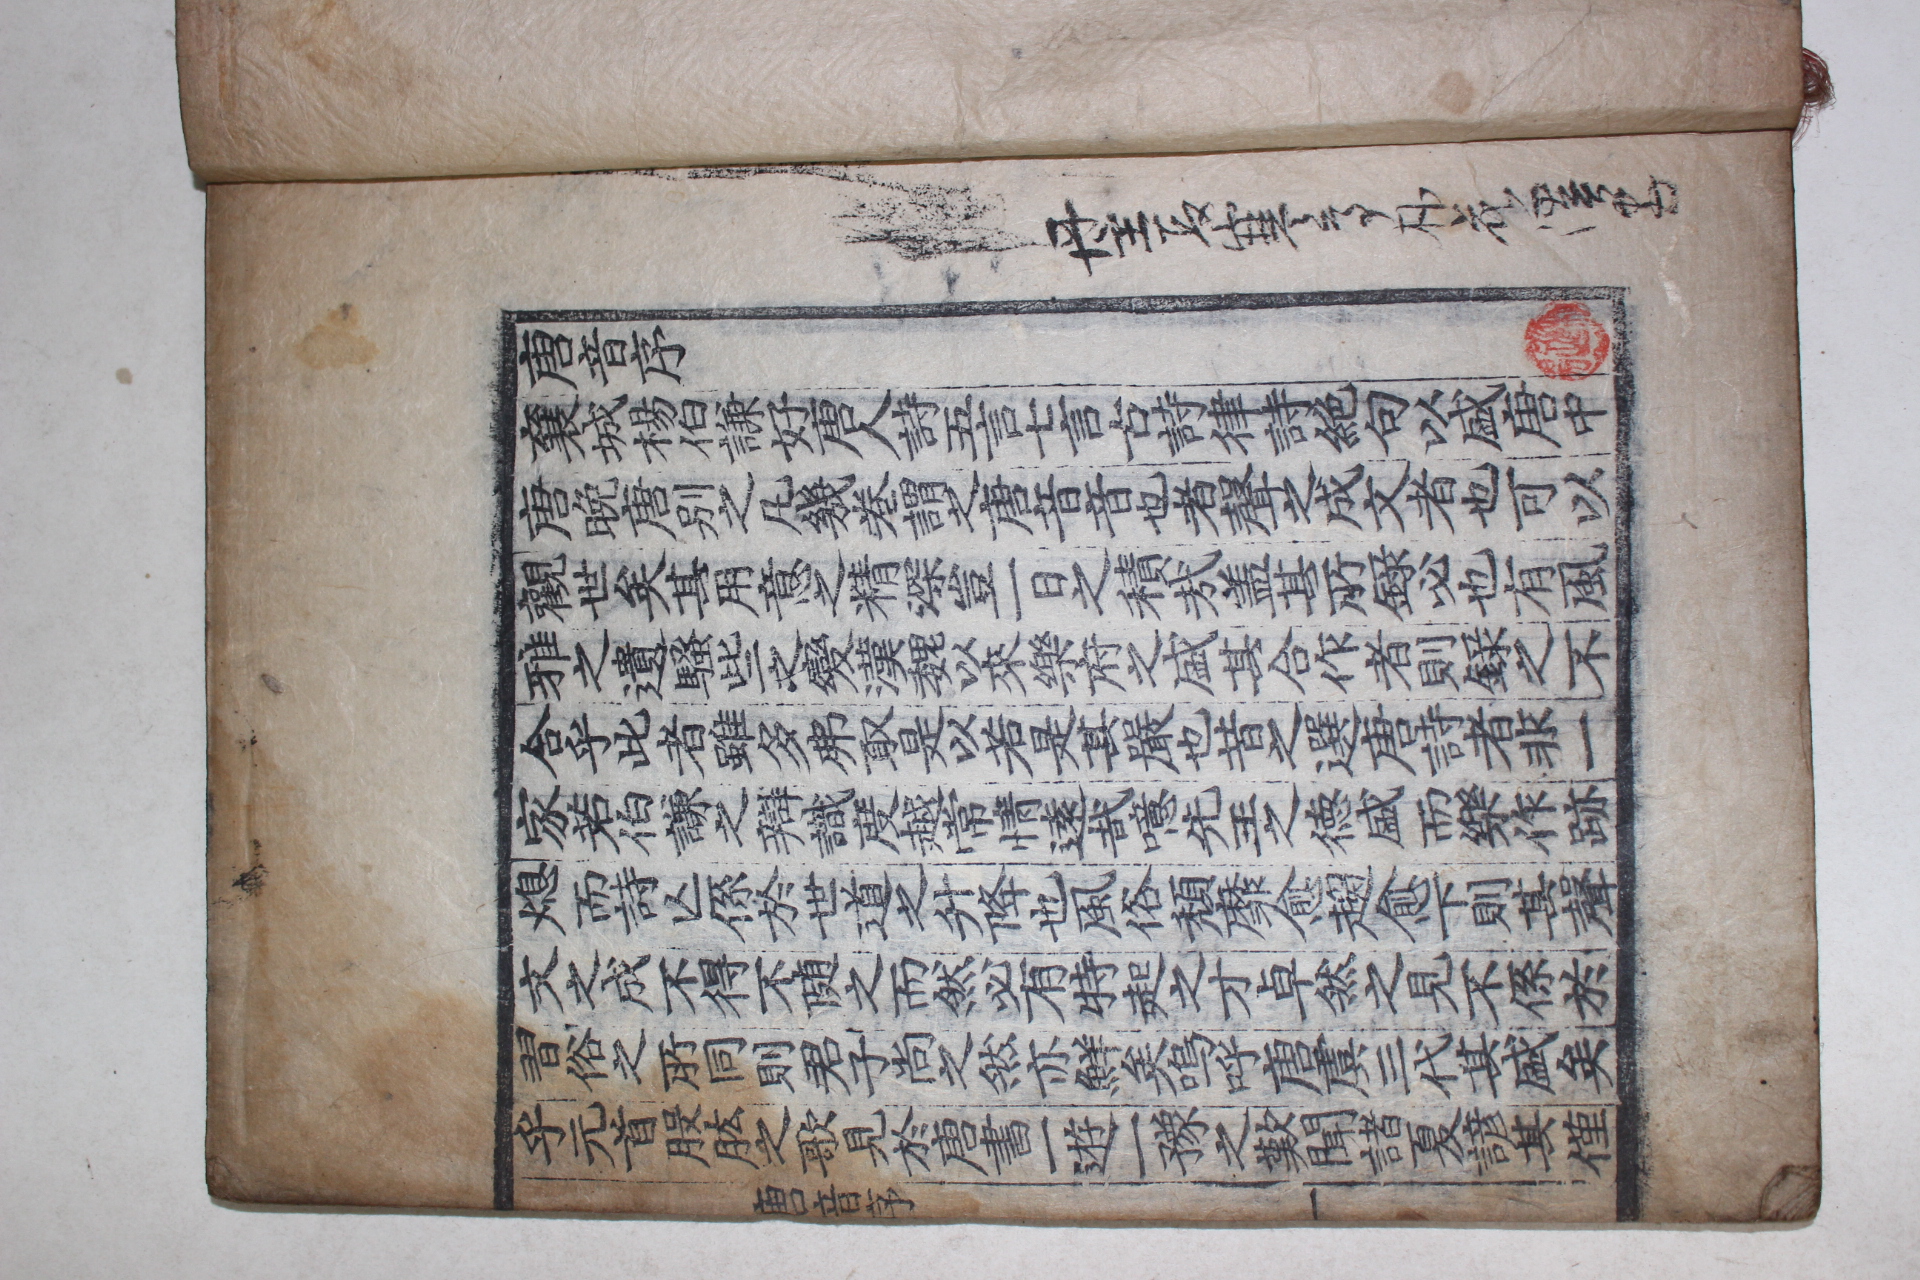 唐音序
襄城楊伯謙好唐人詩五言七言古詩律詩絕句以盛唐中
唐晚唐別之凡幾卷謂之唐音音也者聲之成文者也可以
觀世矣其用意之精深豈一日之積㢤盖其所錄必也有風
雅之遺騷些之變漢魏以來樂府之盛其合作者則錄之不
合乎此者雖多弗取是以若是其嚴也昔之選唐詩者非一
家若伯謙之辯識度越常情遠哉噫先王之德盛而樂作跡
熄而詩亾係於世道之升降也風俗頹靡愈趨愈下則其聲
文之成不得不隨之而然必有特起之才卓然之見不係於
習俗之所同則君子尚之然亦鮮矣嗚呼唐虞三代其盛矣
乎元首股肱之歌見於唐書一遊一豫之歎聞諸夏諺其僅
唐音序
一